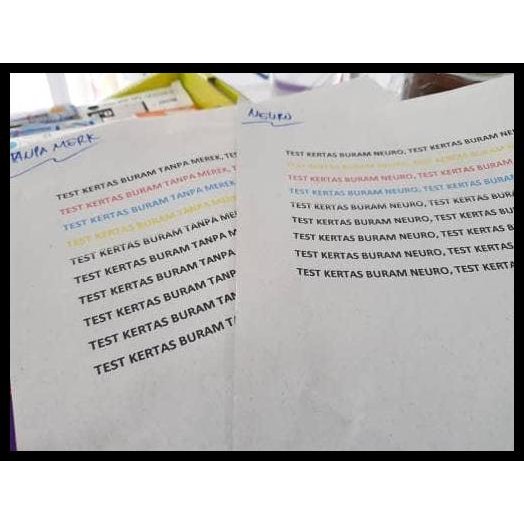 TANPA MERK
TEST KERTAS BURAM TANPA MEREK,
TEST KERTAS BURAM TANPA MEREK,
TEST KERTAS BURAM TANPA MEREK
TEST KERTAS BURAM TANPA
TEST KERTAS BURAM TANPA ME
TEST KERTAS BURAM TANPA M
TEST KERTAS BURAM TANPA
TEST KERTAS BURAM TANP
TEST KERTAS BURAM TAN
TEST KERTAS BURAM T
NEURO
TEST KERTAS BURAM NEURO, TEST KERTAS BURAM NE
TEST KERTAS BURAM NEURO, TEST KERTAS BURAM
TEST KERTAS BURAM NEURO, TEST KERTAS BURAM
TEST KERTAS BURAM NEURO, TEST KERTAS BURAM
TEST KERTAS BURAM NEURO, TEST KERTAS BURA
TEST KERTAS BURAM NEURO, TEST KERTAS BU
TEST KERTAS BURAM NEURO, TEST KERTAS BU
TEST KERTAS BURAM NEURO, TEST KERTAS
TEST KERTAS BURAM NEURO, TEST KERTA